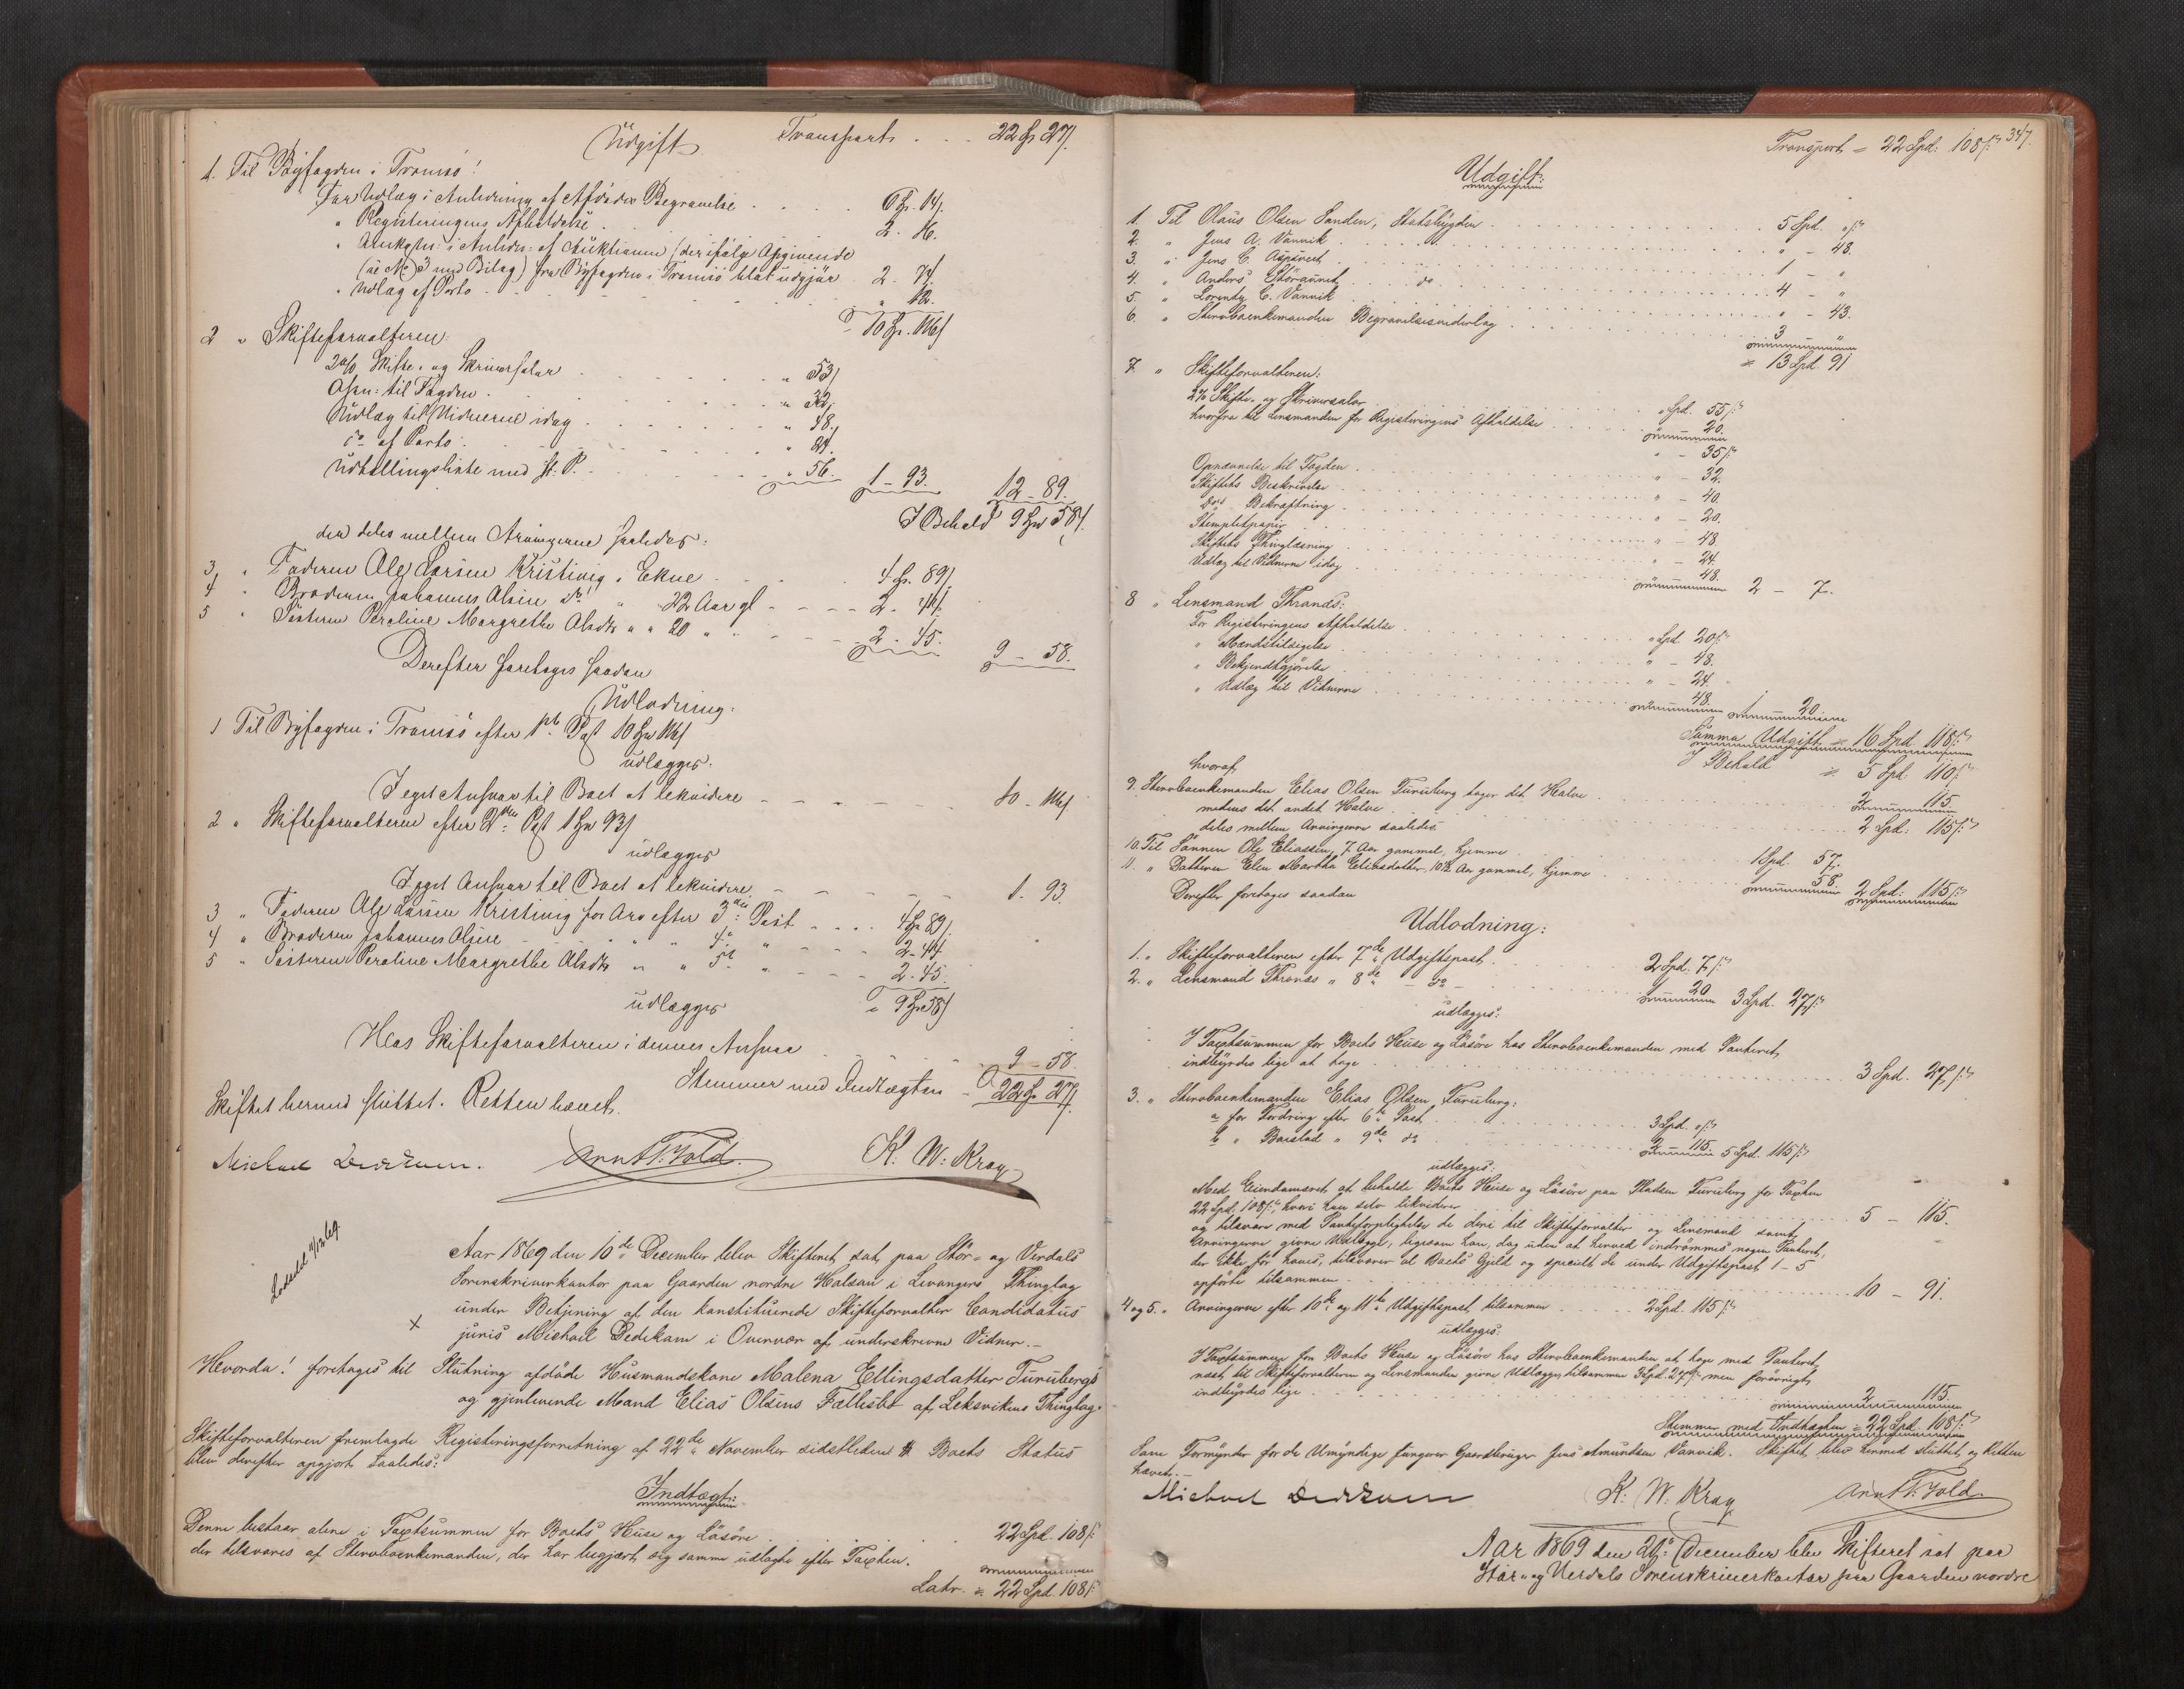 Udgift Transport . . . 22 Sp 27/.
1. Til Byfogden i Tromsø!
For Udlæg i Anledning af Afdødes Begravelse . . . . 6 Sp. 14/.
" Registreringens Afholdelse . 2. 16.
" Omkostn: i Anledn: af Auktionen (der ifølge Opgivende
(se No 3 med Bilag) fra Byfogden i Tromsø blot udgjør 2. 74/.
" Udlæg af Porto . . . . . . " 12.
10 Sp. 116/
2 " Skifteforvalteren:
2 o/o Skifte- og Skriversalær . . . . . " 53/
Opn: til Fogden . . . . . " 32.
Udlæg til Vidnerne idag . . . . . " 48.
do af Porto . . . . . " 24.
Udtællingsliste med st. P. . . . . " 56. 1 - 93. 12 - 89.
I Behold 9 Sp 58/.
der deles mellem Arvingerne saaledes:
3. " Faderen Ole Larsen Kristivig i Ekne . . . 4 Sp. 89/.
4 " Broderen Johannes Olsen do " 22 Aar gl - - - - 2. 44/.
5 " Søsteren Peroline Margrethe Olsdtr " " 20 " - - - - 2. 45. 9 - 58.
Derefter foretoges saadan
Udlodning:
1 Til Byfogden i Tromsø efter 1ste Post 10 Sp 116/
udlægges:
I eget Ansvar til Boet at lekvidere - - - - - 10 - 116/
2 " Skifteforvalteren efter 2den Post 1 Sp 93/
udlægges
I eget Ansvar til Boet at lekvidere - - - - - 1. 93.
3 " Faderen Ole Larsen Kristivig for Arv efter 3die Post . . . . 4 Sp 89/.
4 " Broderen Johannes Olsen - - " " 4de " - - - - 2 - 44/.
5 " Søsteren Peroline Margrethe Olsdtr " " 5te " - - - - 2. 45.
udlægges " 9 Sp 58/
Hos Skifteforvalteren i dennes Ansvar . . . . 9 - 58.
Stemmer med Indtægten - 22 Sp. 27/.
Skiftet hermed sluttet. Retten hævet.
Michael Dedekam. Arnt T. Fold. K: W: Kray
Aar 1869 den 10de December blev Skifteret sat paa Stør- og Verdals
Sorenskriverkontor paa Gaarden nordre Halsan i Levangers Thinglag
under Betjening af den konstituerede Skifteforvalter Candidatus
juris Michael Dedekam i Overvær af underskrevne Vidner.-
Hvorda! foretages til Slutning afdøde Huusmandskone Malena Ellingsdatter Furubergs
og gjenlevende Mand Elias Olsens Fællesbo af Leksvikens Thinglag.
Skifteforvalteren fremlagde Registreringsforretning af 22de November sidstleden. Boets Status
blev derefter opgjort saaledes:
Indtægt:
Denne bestaar alene i Taxtsummen for Boets Huse og Løsøre . . . . 22 Spd. 108/:
der tilsvares af Stervboenkemanden, der har begjært sig samme udlagte efter Taxten.
Latr. = 22 Spd. 108/:
347.
Transport = 22 Spd: 108/:
Udgift:
1. Til Olaus Olsen Sanden, Stadsbygden . . . . 5 Spd. "/:
2. " Jens A. Vanvik . . . . " - 48.
3. " Jens C. Aspivert . . . . 1 - "
4. " Anders Støraunet do . . . . 4 - "
5. " Lorents C. Vanvik . . . . " - 43.
6. " Stervboenkemanden Begravelsesvederlag . . . . 3 "
= 13 Spd. 91
7 " Skifteforvalteren:
2 % Skifte- og Skriversalær . . . . " Spd. 55/:
hvorfra til Lensmanden for Registreringens Afholdelse . . . . 20.
" - 35/:
Opnævnelse til Fogden . . . . " - 32.
Skiftets Beskrivelse . . . . " - 40.
Dets Bekræftning . . . . " - 20.
Stemplet papir . . . . " - 48.
Skiftets Thinglæsning . . . . " - 24.
Udlæg til Vidnerne idag . . . . 48. 2 - 7.
8 " Lensmand Thranæs:
For Registreringens Afholdelse . . . . " Spd. 20/:
" Mændstilsigelse . . . . " - 48.
" Bekjendtgjørelse . . . . " - 24.
" Udlæg til Vidnerne . . . . 48. 1 20.
Summa Udgift = 16 Spd. 118/:
I Behold = 5 Spd. 110/:
hvoraf
9. Stervboenkemanden Elias Olsen Furuberg tager det Halve . . . . 2 115.
medens det andet Halve . . . . 2 Spd: 115/:
deles mellem Arvingerne saaledes
10. Til Sønnen Ole Eliassen, 7 Aar gammel, hjemme . . . . 1 Spd. 57.
11. " Datteren Elen Martha Eliasdatter, 10½ Aar gammel, hjemme . . . . 58. 2 Spd: 115/:
Derefter foretages saadan
Udlodning:
1. " Skifteforvalteren efter 7de Udgiftspost . . . . 2 Spd. 7/:
2. " Lensmand Thranæs " 8de - do - . . . . 20 3 Spd. 27/:
udlægges:
I Taxtsummen for Boets Huse og Løsøre hos Stervboenkemanden med Panteret,
indbyrdes lige at tage . . . . 3 Spd. 27/:
3. " Stervboenkemanden Elias Olsen Furuberg:
a for Fordring efter 6te Post . . . . 3 Spd. "/:
b " Boeslod " 9de do . . . . 2 - 115. 5 Spd. 115/:
udlægges:
Med Eiendomsret at beholde Boets Huse og Løsøre paa Pladsen Furuberg for Taxten
22 Spd, 108/:, hvori han selv likviderer . . . . 5 - 115.
og tilsvare med Panteforpligtelse de deri til Skifteforvalter og Lensmand samt
Arvingerne givne Udlægge, ligesom han, dog uden at herved indrømmes nogen Panteret,
der ikke før haves, tilsvarer al Boets Gjeld og specielt de under Udgiftspost 1 - 5
opførte tilsammen . . . . 10 - 91.
4 og 5. " Arvingerne efter 10de og 11te Udgiftspost, tilsammen . . . . 2 Spd. 115/:
udlægges:
I Taxtsummen for Boets Huse og Løsøre hos Stervboenkemanden at tage med Panteret,
næst til Skifteforvalteren og Lensmanden givne Udlægge, tilsammen 3 Spd. 27/:, men forøvrigt
indbyrdes lige . . . . 2 115.
Stemmer med Indtægten = 22 Spd. 108/:
Som Formynder for de Umyndige fungerer Gaardbruger Jens Amundsen Vanvik. Skiftet blev hermed sluttet, og Retten
hævet.-
Michael Dedekam K: W: Kray Arnt T. Fold.
Aar 1869 den 20de December blev Skifteret sat paa
Stør- og Verdals Sorenskriverkontor paa Gaarden nordre